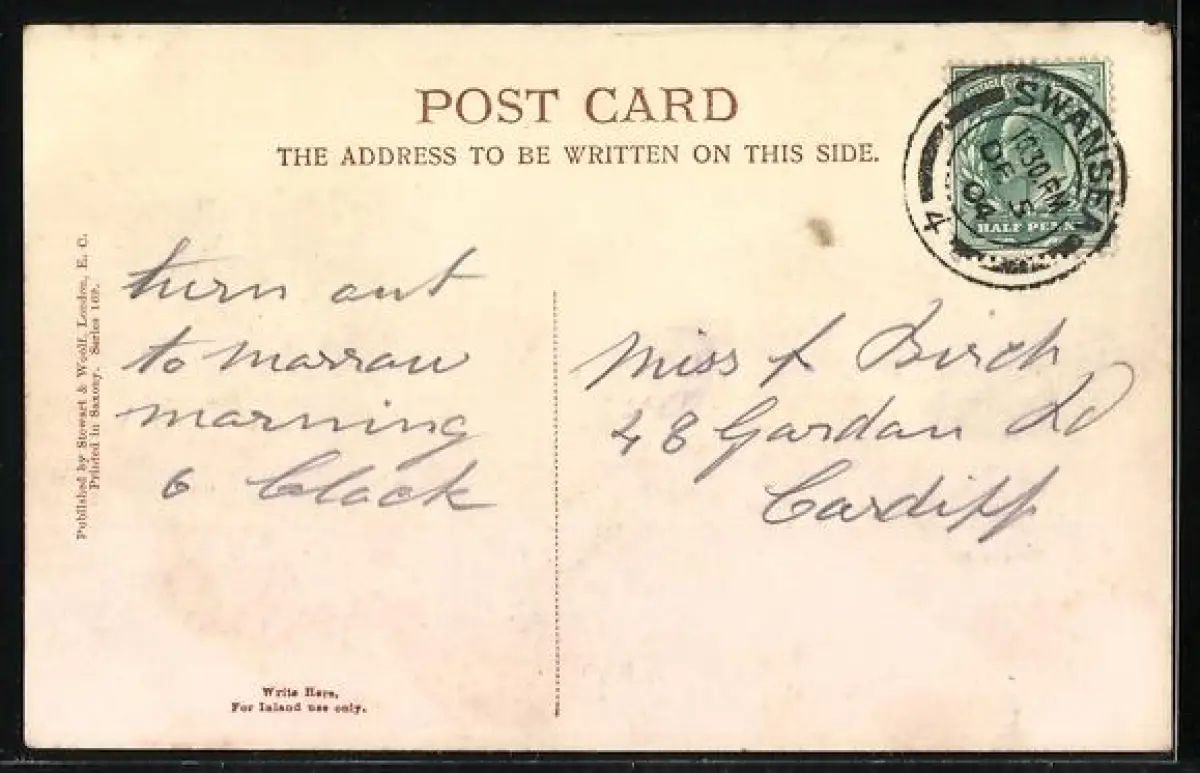 POST CARD
THE ADDRESS TO BE WRITTEN ON THIS SIDE.
SWANSEA
DE 5
04
4
HALF PENNY
Published by Stewart & Woolf, London, E. C.
Printed in Saxony. Series 169.
turn out
to morrow
morning
6 Clock
Miss Birch
48 Gordon Rd
Cardiff
Write Here,
For Inland use only.